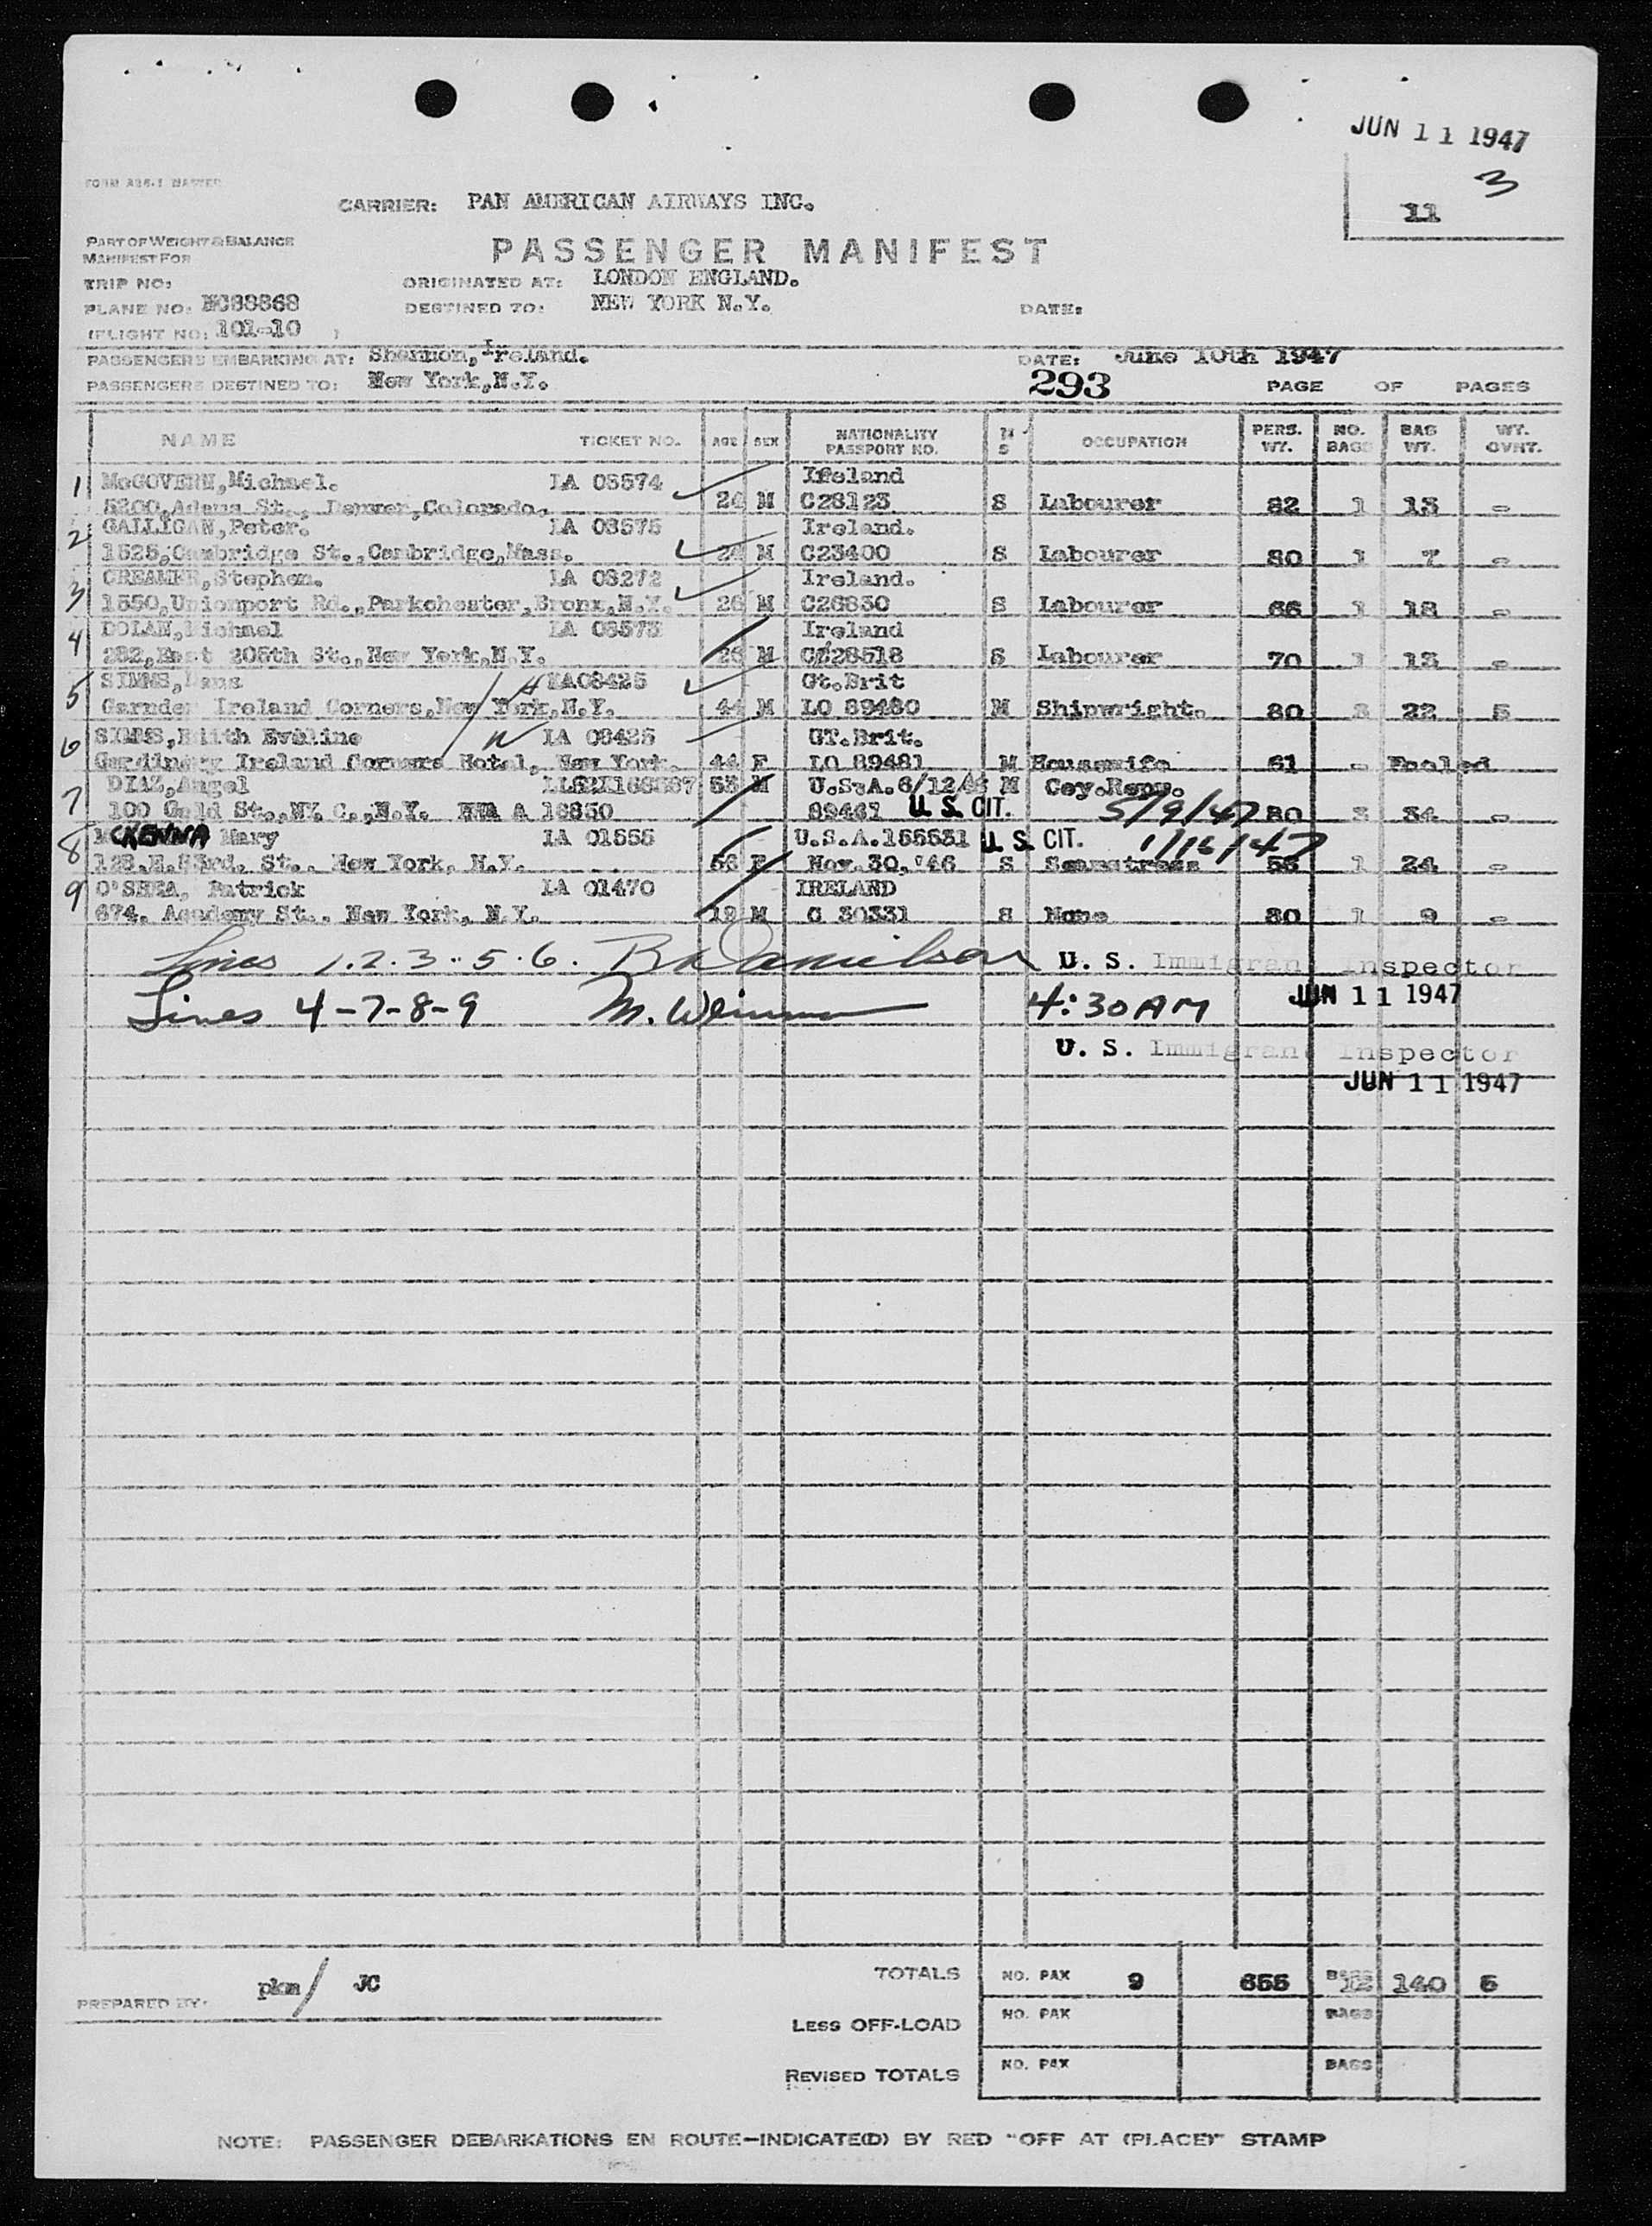 JUN 11 1947
3
11
FORM A26-1 MASTER
CARRIER: PAN AMERICAN AIRWAYS INC.
PART OF WEIGHT & BALANCE
MANIFEST FOR
PASSENGER MANIFEST
TRIP NO: ORIGINATED AT: LONDON ENGLAND.
PLANE NO: NC88868 DESTINED TO: NEW YORK N.Y. DATE:
(FLIGHT NO: 101-10 )
PASSENGERS EMBARKING AT: Shannon, Ireland. DATE: June 10th 1947
PASSENGERS DESTINED TO: New York,N.Y. 293 PAGE OF PAGES
NAME TICKET NO. AGE SEX NATIONALITY PASSPORT NO. M S OCCUPATION PERS. WT. NO. BAGS BAG WT. WT. OVNT.
1 McGOVERN,Michael. IA 03574 Ireland
5200,Adams St., Denver,Colorado. M C28123 S Labourer 82 1 13 -
2 GALLIGAN,Peter. IA 03575 Ireland.
1525,Cambridge St.,Cambridge,Mass. M C23400 S Labourer 80 1 7 -
3 CREAMER,Stephen. IA 03272 Ireland.
1550,Unionport Rd.,Parkchester,Bronx,N.Y. 26 M C26830 S Labourer 66 1 18 -
4 DOLAN,Michael IA 03573 Ireland
282,East 205th St.,New York,N.Y. 26 M C28518 S Labourer 70 1 13 -
5 SIMMS, IA03425 Gt.Brit
Garnder Ireland Corners,New York,N.Y. 44 M LO 89480 M Shipwright. 80 3 22 5
6 SIMMS,Edith Eveline IA 03425 GT.Brit.
Gardiners Ireland Corners Hotel, New York. 44 F LO 89481 M Housewife 61 - Pooled
7 DIAZ,Angel 53 M U.S.A. 6/12/46 M Cey.Repw.
100 Gold St.,NY. C.,N.Y. A 16850 89461 U. S. CIT. 5/9/47 80 3 34 -
8 McKENNA Mary IA 01555 U.S.A.155531 U. S. CIT. 1/16/47
123,E.83rd. St.. New York, N.Y. 56 F Nov.30,'46 S Seamstress 56 1 24 -
9 O'SHEA, Patrick IA 01470 IRELAND
674, Academy St.. New York, N.Y. 19 M C 30331 S None 80 1 9 -
Lines 1.2.3..5.6. R Danielson U. S. Immigrant Inspector
Lines 4-7-8-9 M. Weinman 4:30 AM JUN 11 1947
U. S. Immigrant Inspector
JUN 11 1947
TOTALS NO. PAX 9 655 BAGS 12 140 5
PREPARED BY: pkm/ JC
LESS OFF-LOAD NO. PAX BAGS
REVISED TOTALS NO. PAX BAGS
NOTE: PASSENGER DEBARKATIONS EN ROUTE—INDICATE(D) BY RED "OFF AT (PLACE)" STAMP